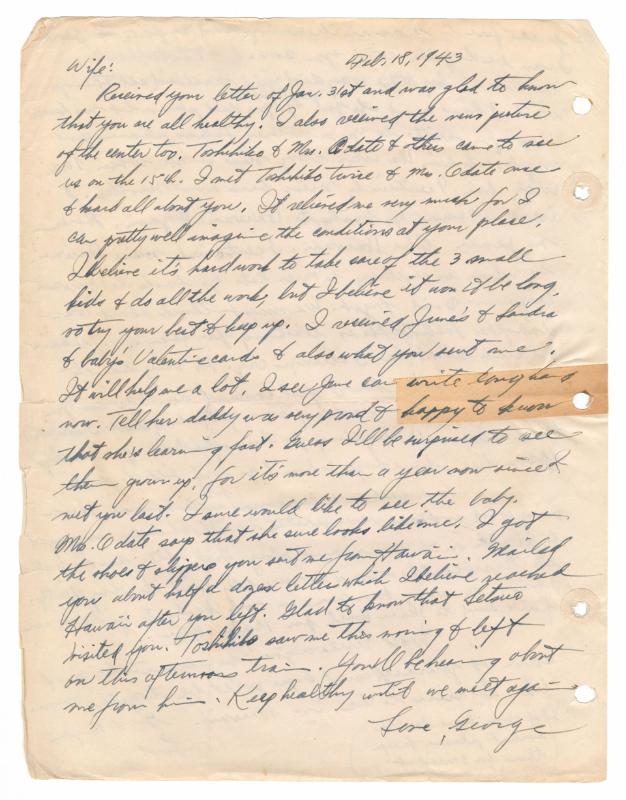 Feb. 18, 1943
Wife:
Received your letter of Jan. 31st and was glad to know
that you are all healthy. I also received the news picture
of the center too. Toshihiko & Mrs. Odate & others came to see
us on the 15th. I met Toshihiko twice & Mrs. Odate once
& heard all about you. It relieved me very much for I
can pretty well imagine the conditions at your place.
I believe it's hard work to take care of the 3 small
kids & do all the work, but I believe it won't be long,
so try your best & keep up. I received June's & Sandra
& baby's Valentine cards & also what you sent me.
It will help me a lot. I see June can write longhand
now. Tell her daddy was very proud & happy to know
that she's learning fast. Guess I'll be surprised to see
them grown up, for it's more than a year now since I
met you last. I sure would like to see the baby.
Mrs. Odate says that she sure looks like me. I got
the shoes & slippers you sent me from Hawaii. Mailed
you about half a dozen letters which I believe reached
Hawaii after you left. Glad to know that Setsuo
visited you. Toshihiko saw me this morning & left
on this afternoons train. You'll be hearing about
me from him. Keep healthy until we meet again
Love, George